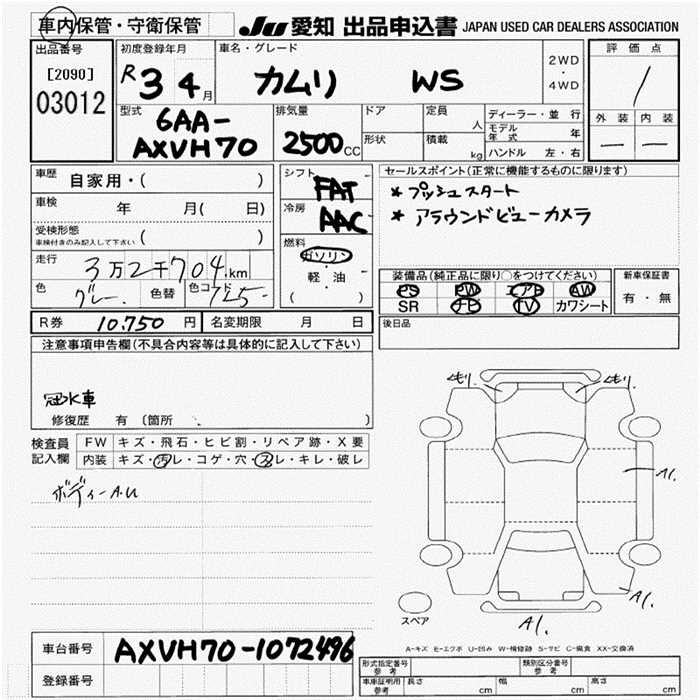 車内保管・守衛保管 JU 愛知 出品申込書 JAPAN USED CAR DEALERS ASSOCIATION
出品番号 初度登録年月 車名・グレード 2WD・4WD 評価点
[2090]
03012
R3 4月 カムリ WS
外装 内装
型式 排気量 ドア 定員 人 ディーラー・並行
6AA-
AXVH70 2500CC 形状 積載 kg モデル年式 年
ハンドル 左・右
車歴 自家用・( ) シフト FAT セールスポイント(正常に機能するものに限ります)
車検 年 月( 日) 冷房 AAC * プッシュスタート
* アラウンドビューカメラ
受検形態
車検付きのみ記入して下さい ( ) 燃料 ガソリン・軽・油 ( )
走行 3万2千704km
色 グレー 色替 色コード
装備品(純正品に限り○をつけてください) 新車保証書
PS PW エアB AW 有・無
SR ナビ TV カワシート
R券 10.750円 名変期限 月 日 後日品
注意事項申告欄(不具合内容等は具体的に記入して下さい)
冠水車
修復歴 有 〔箇所 〕
検査員記入欄 FW キズ・飛石・ヒビ割・リペア跡・X要
内装 キズ・汚レ・コゲ・穴・スレ・キレ・破レ
ボディーA.U
くもり. くもり.
A1.
A1.
A1.
スペア
A-キズ E-エクボ U-凹み W-補修跡 S-サビ C-腐食 XX-交換済
車台番号 AXVH70-1072496
登録番号
型式指定番号 参考 類別区分番号 参考
車庫証明用 参考 長さ cm 幅 cm 高さ cm